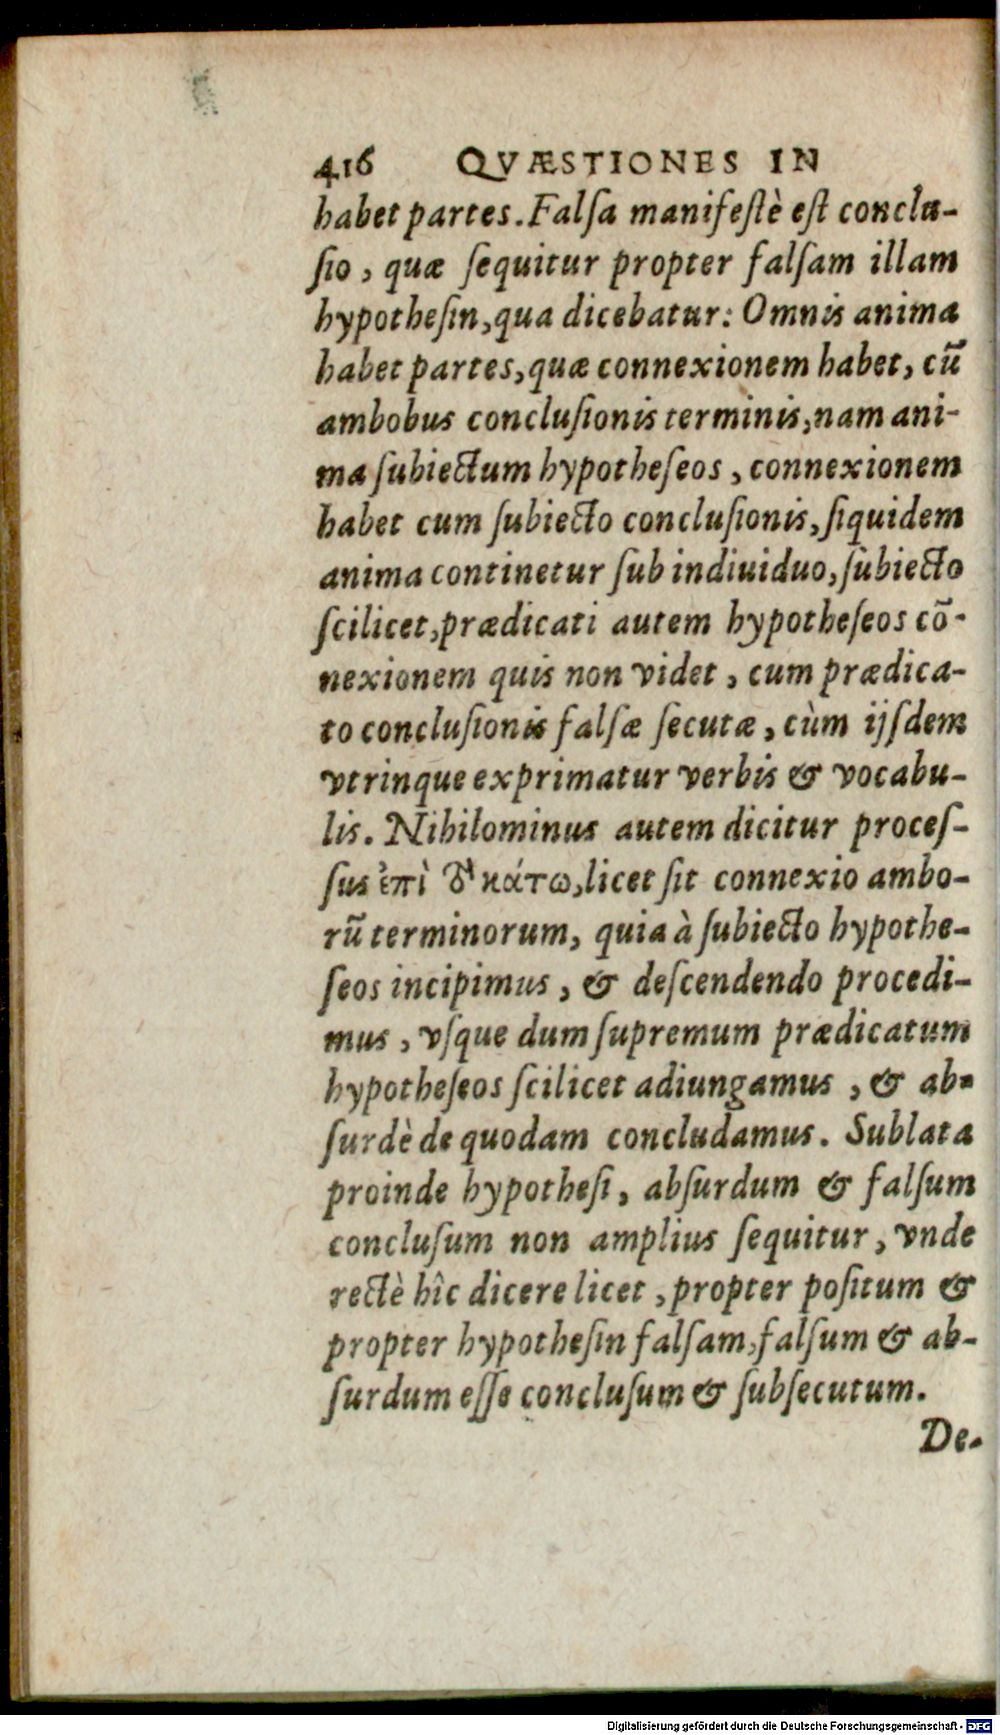 416 QVÆSTIONES IN
habet partes. Falſa manifeſtè eſt conclu-
ſio, quæ ſequitur propter falſam illam
hypotheſin, qua dicebatur: Omnis anima
habet partes, quæ connexionem habet, cū
ambobus concluſionis terminis, nam ani-
ma ſubiectum hypotheſeos, connexionem
habet cum ſubiecto concluſionis, ſiquidem
anima continetur ſub indiuiduo, ſubiecto
ſcilicet, prædicati autem hypotheſeos cō-
nexionem quis non videt, cum prædica-
to concluſionis falſæ ſecutæ, cùm ijſdem
vtrinque exprimatur verbis & vocabu-
lis. Nihilominus autem dicitur proceſ-
ſus ἐπὶ τὸ κάτω, licet ſit connexio ambo-
rū terminorum, quia à ſubiecto hypothe-
ſeos incipimus, & deſcendendo procedi-
mus, vſque dum ſupremum prædicatum
hypotheſeos ſcilicet adiungamus, & ab-
ſurdè de quodam concludamus. Sublata
proinde hypotheſi, abſurdum & falſum
concluſum non amplius ſequitur, vnde
rectè hîc dicere licet, propter poſitum &
propter hypotheſin falſam, falſum & ab-
ſurdum eſſe concluſum & ſubſecutum.
De-
Digitalisierung gefördert durch die Deutsche Forschungsgemeinschaft - DFG